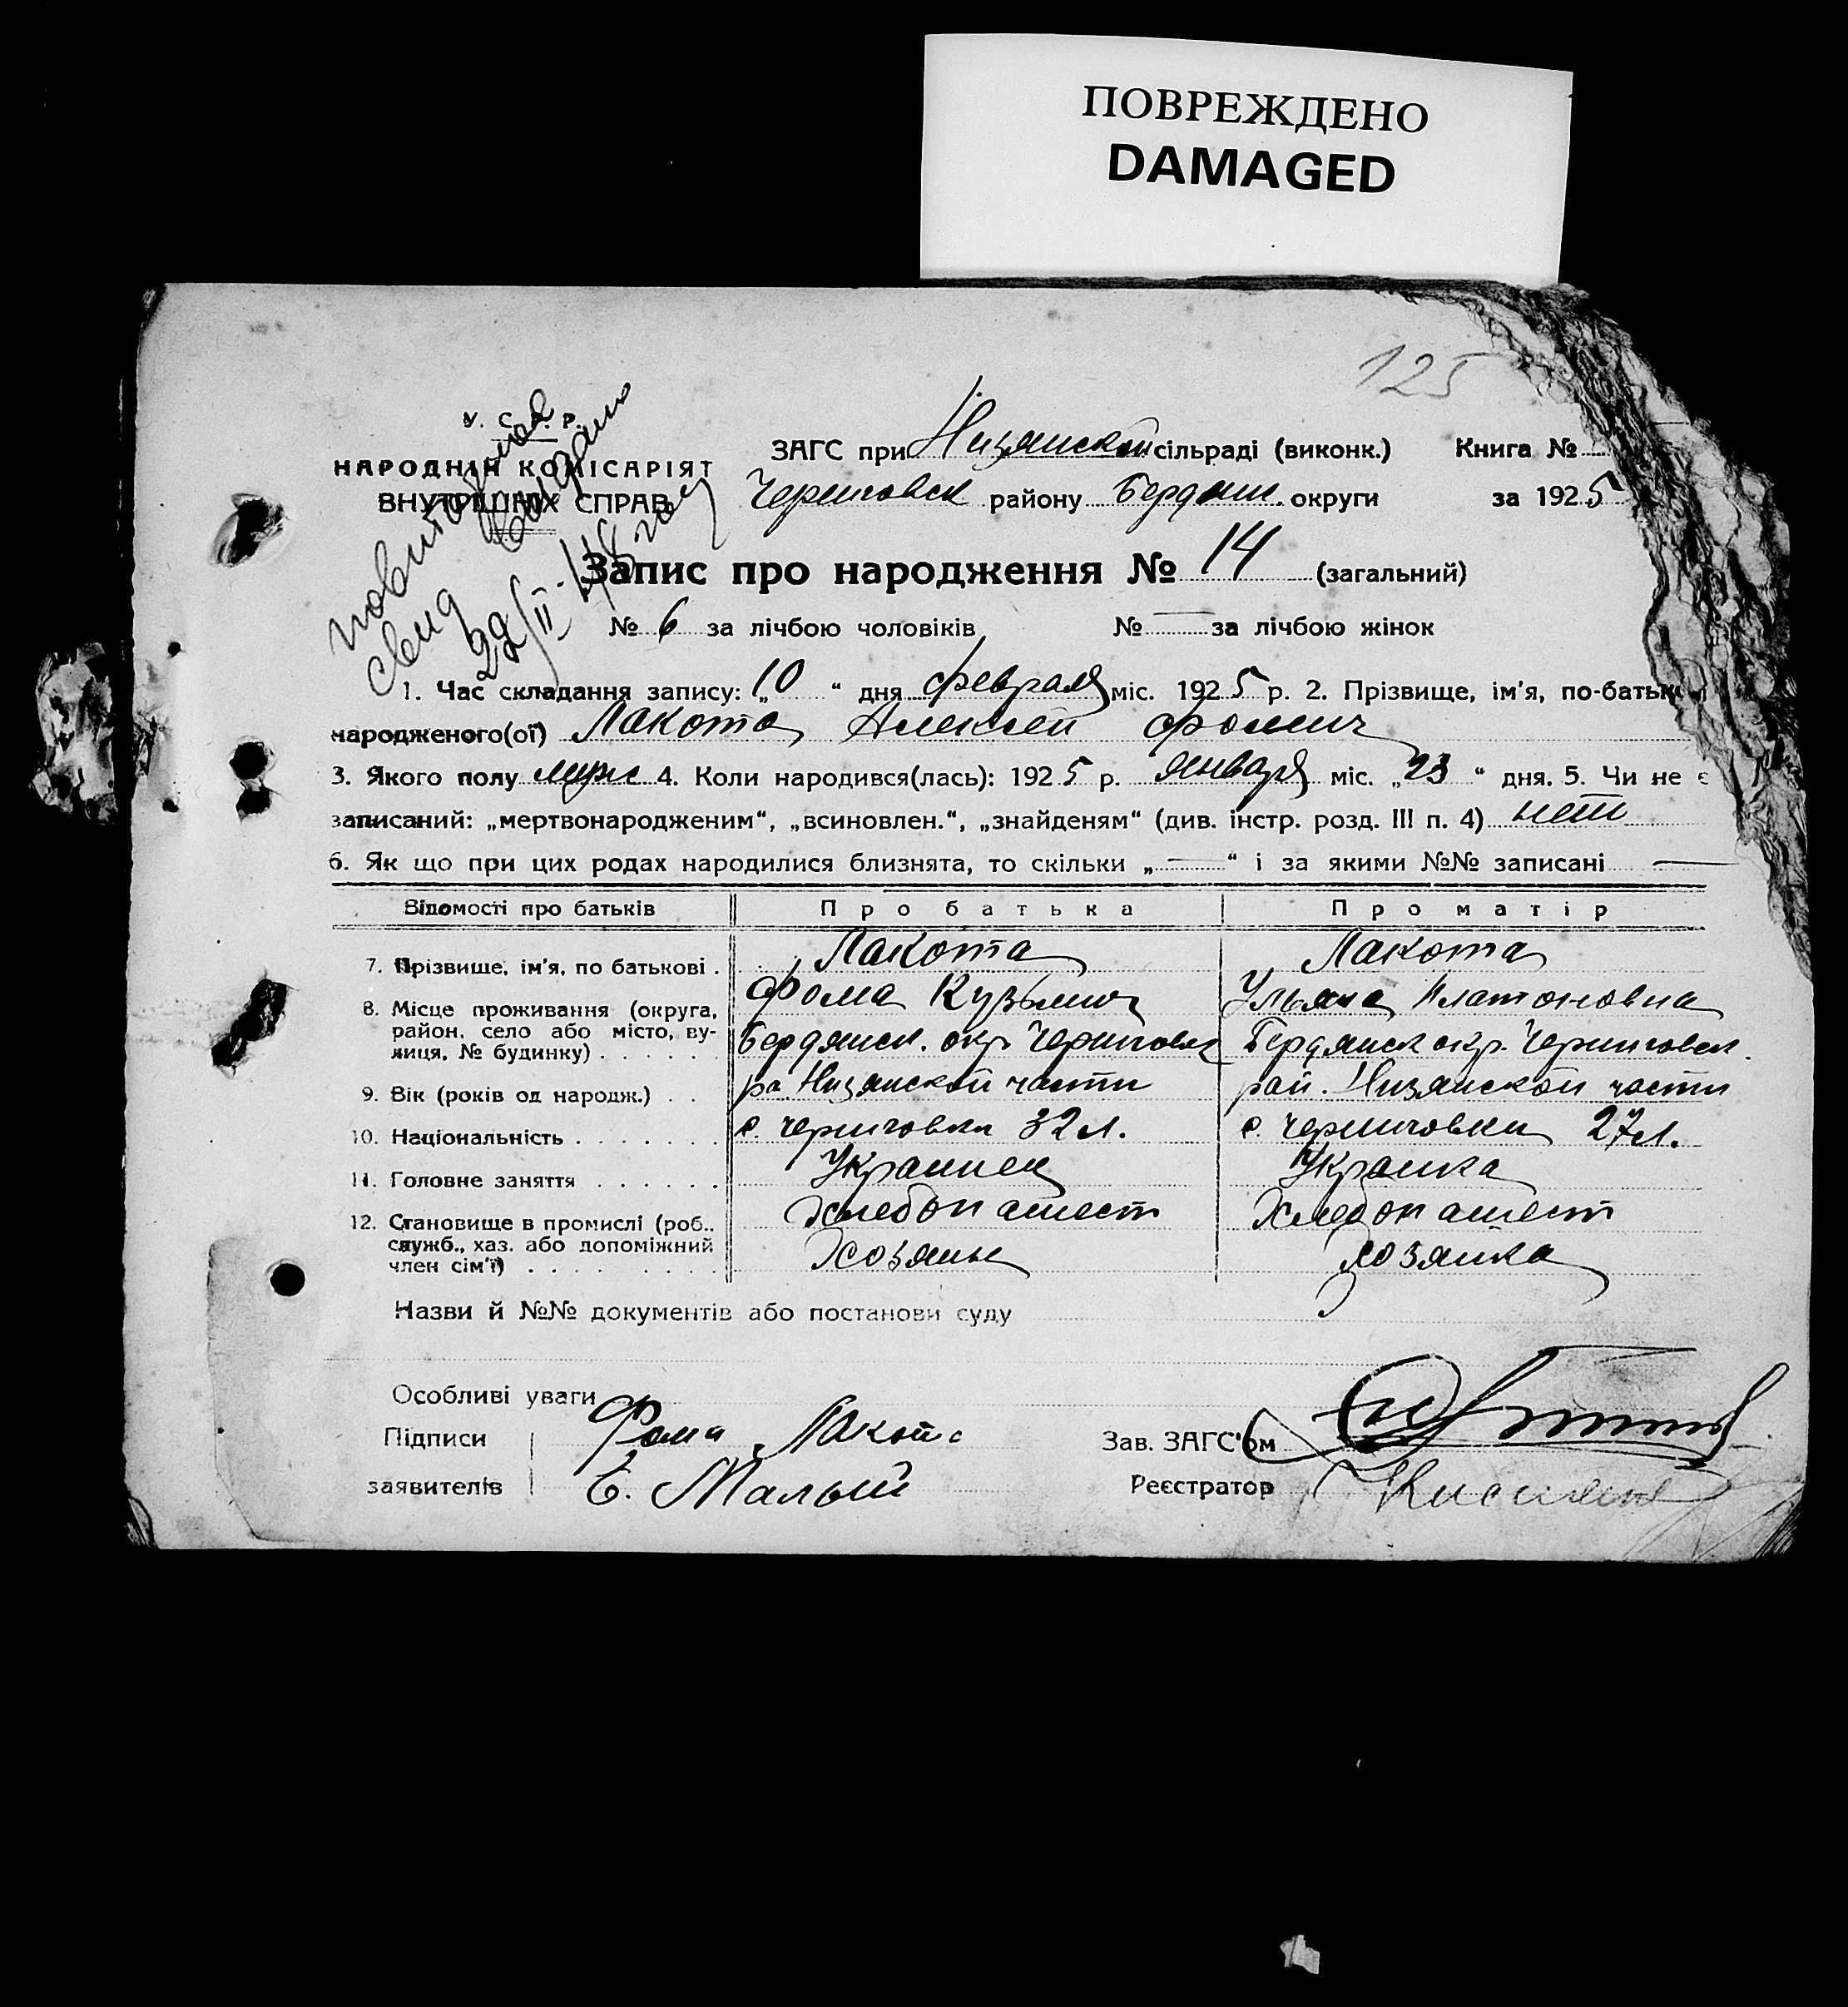 ПОВРЕЖДЕНО
DAMAGED
125
У. С. Р. Р.
НАРОДНІЙ КОМІСАРІЯТ
ВНУТРІШНІХ СПРАВ
повторное
свид выдано
22/II-48 году
ЗАГС при Низянской сільраді (виконк.) Книга №
Черниговск району Бердян. округи за 1925
Запис про народження № 14 (загальний)
№ 6 за лічбою чоловіків № — за лічбою жінок
1. Час складання запису: „10“ дня февраля міс. 1925 р. 2. Прізвище, ім'я, по-батьк
народженого(ої) Лакота Алексей Фомич
3. Якого полу мужс 4. Коли народився(лась): 1925 р. января міс. „23“ дня. 5. Чи не є
записаний: „мертвонародженим“, „всиновлен.“, „знайденям“ (див. інстр. розд. III п. 4) нет
6. Як що при цих родах народилися близнята, то скільки „—“ і за якими №№ записані —
Відомості про батьків Про батька Про матір
7. Прізвище, ім'я, по батькові . Лакота Лакота
Фома Кузьмич Ульяна Платоновна
8. Місце проживання (округа, район, село або місто, вулиця, № будинку) . . . . . Бердянск. окр. Черниговск Бердянск окр. Черниговск.
9. Вік (років од народж.) . . ра. Низянской части рай. Низянской части
10. Національність . . . . . . . с. Черниговки 32 л. с. Черниговки 27 л.
11. Головне заняття . . . . . . Украинец Украинка
12. Становище в промислі (роб., служб., хаз. або допоміжний член сім'ї) . . . . . . . . . Хлебопашест Хлебопашест
Хозяин Хозяйка
Назви й №№ документів або постанови суду
Особливі уваги
Підписи Фома Лакота Зав. ЗАГС'ом
заявителів Б. Малый Реєстратор